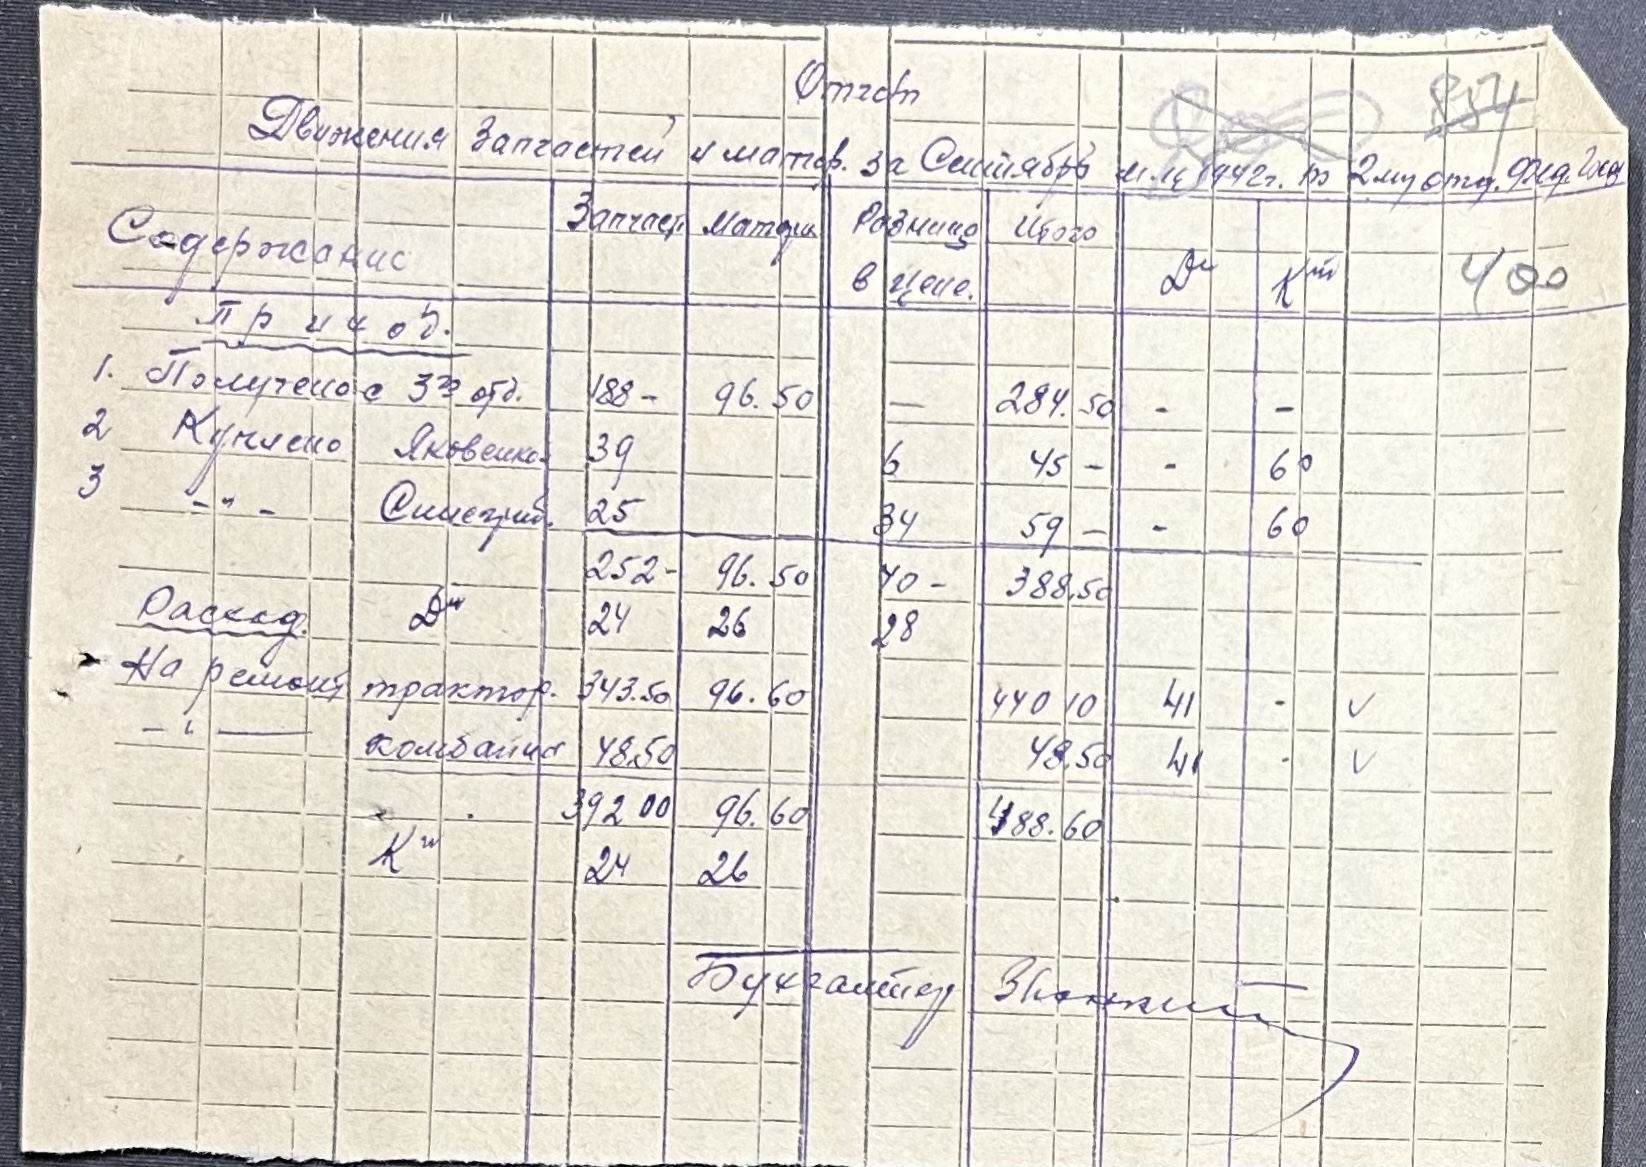 Отчет
857
Движения Запчастей и матер. за Сентябрь м-ц 1942г. по 2му отд.
Содержание Запчасти Матери Разница в цене. Итого Дт Кт 400
Приход.
1. Получено с 3го отд. 188- 96.50 — 284.50 - -
2 Куплено Яковенко. 39 6 45- - 60
3 -"- 25 34 59- - 60
252- 96.50 40- 388.50
Расход. Дт 24 26 28
На ремонт трактор. 343.50 96.60 440 10 41 - ✓
-"- комбайна 48.50 48.50 41 - ✓
392 00 96.60 488.60
Кт 24 26
Бухгалтер